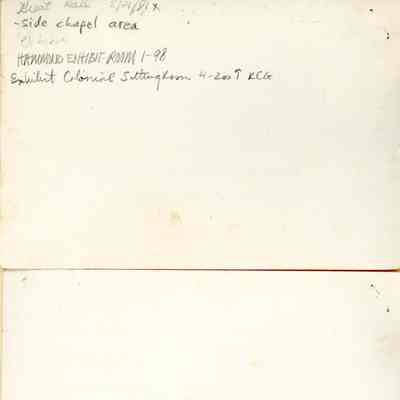 Great Hall 5/21/81 x
-side chapel area
HAMMOND EXHIBIT ROOM 1-98
Exhibit Colonial Sitting Room 4-2001 RCG